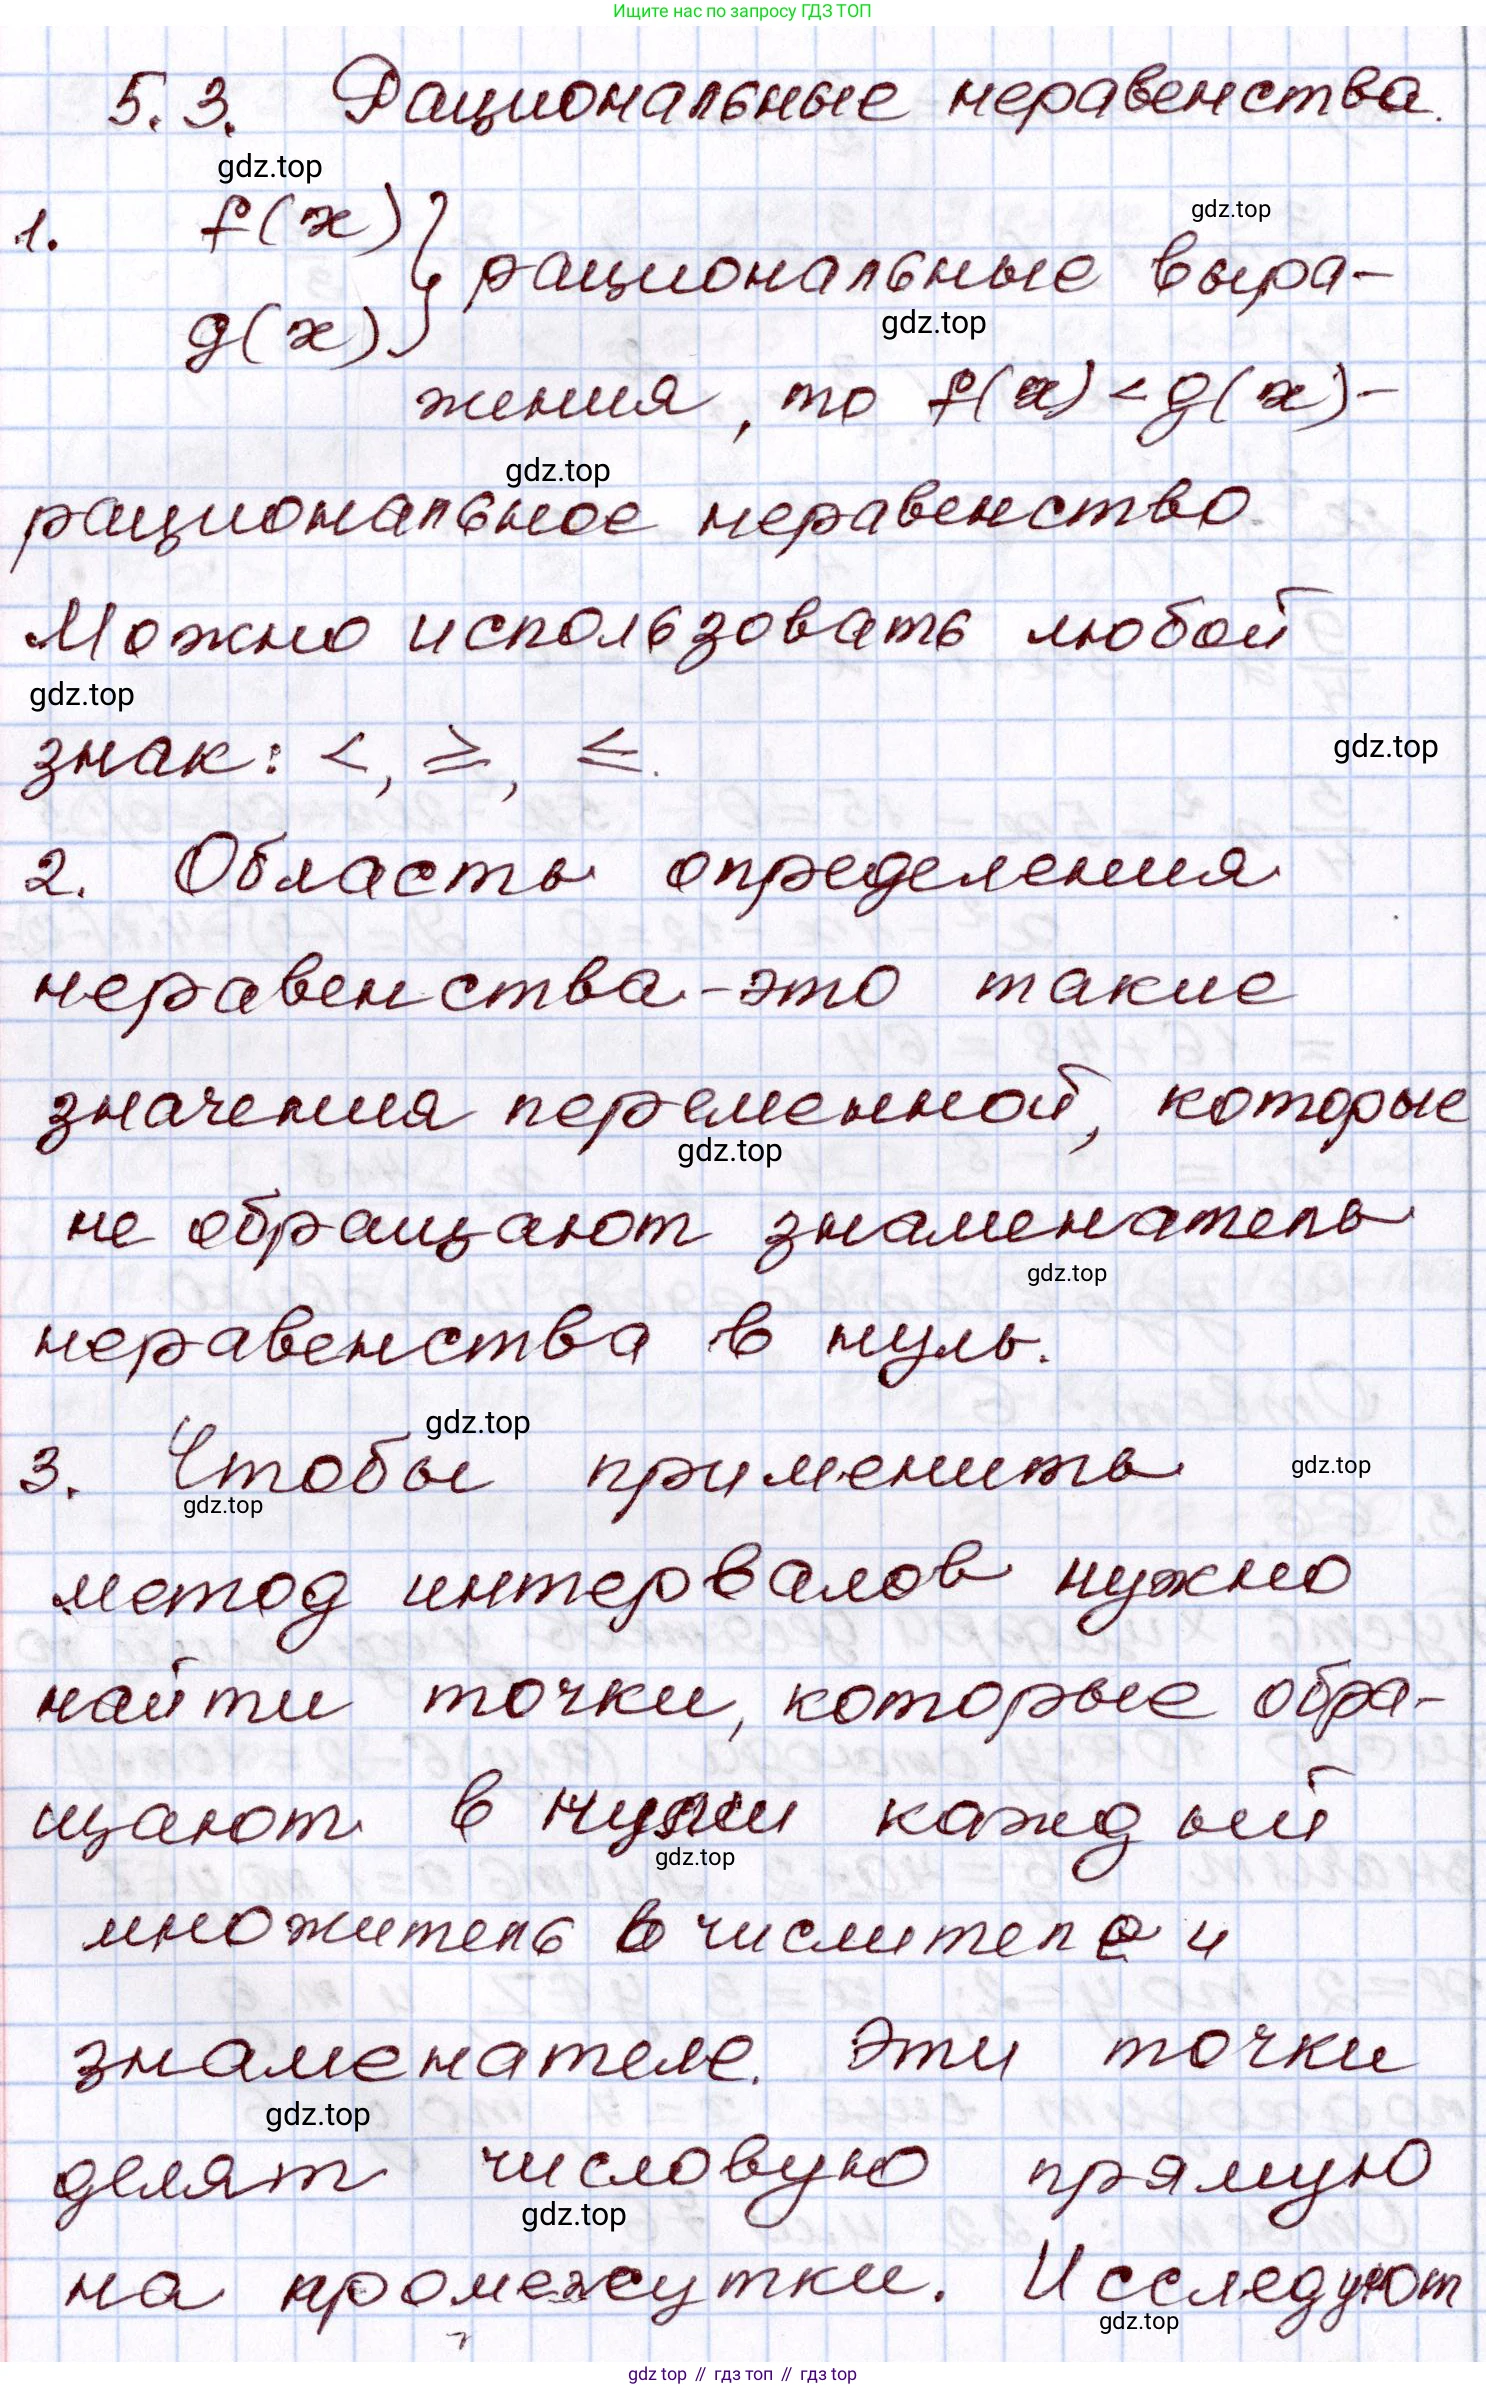 Ищите нас по запросу ГДЗ ТОП
5.3. Рациональные неравенства.
gdz.top
1. f(x)
g(x)
} рациональные выра-
gdz.top
gdz.top
жения, то f(x) < g(x) -
gdz.top
рациональное неравенство
Можно использовать любой
gdz.top
знак: <, ≥, ≤.
gdz.top
2. Область определения
неравенства - это такие
значения переменной, которые
gdz.top
не обращают знаменатель
gdz.top
неравенства в нуль.
gdz.top
3. Чтобы применить
gdz.top
gdz.top
метод интервалов нужно
найти точки, которые обра-
щают в нули каждый
gdz.top
множитель в числителе и
знаменателе. Эти точки
gdz.top
делят числовую прямую
gdz.top
на промежутки. Исследуют
gdz.top
gdz top // гдз топ // гдз top